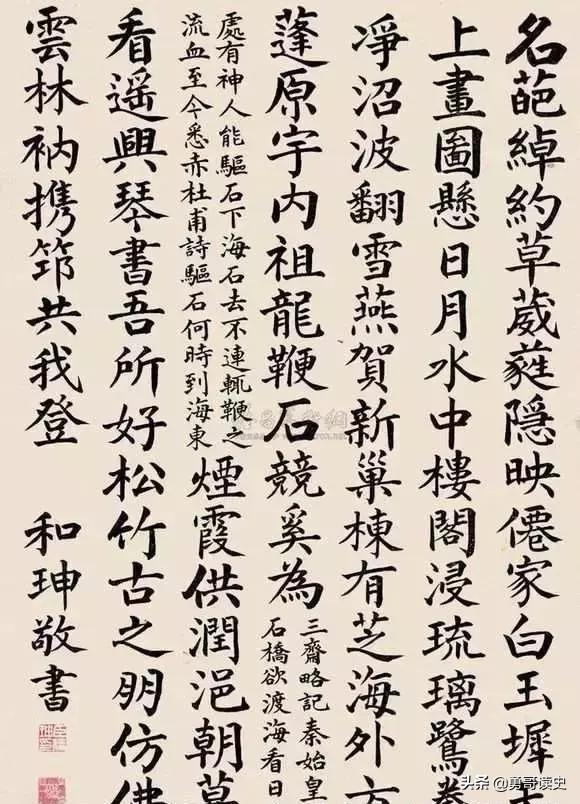 名葩綽約草葳蕤隱映僊家白玉墀天
上畫圖懸日月水中樓閣浸琉璃鷺拳
凈沼波翻雪燕賀新巢棟有芝海外方
蓬原宇内祖龍鞭石競奚為
三齋略記秦始皇
石橋欲渡海看日
處有神人能驅石下海石去不連輒鞭之
流血至今悉赤杜甫詩驅石何時到海東
煙霞供潤浥朝暮
看遙興琴書吾所好松竹古之朋仿佛
雲林衲携筇共我登 和珅敬書
头条 @勇哥读史